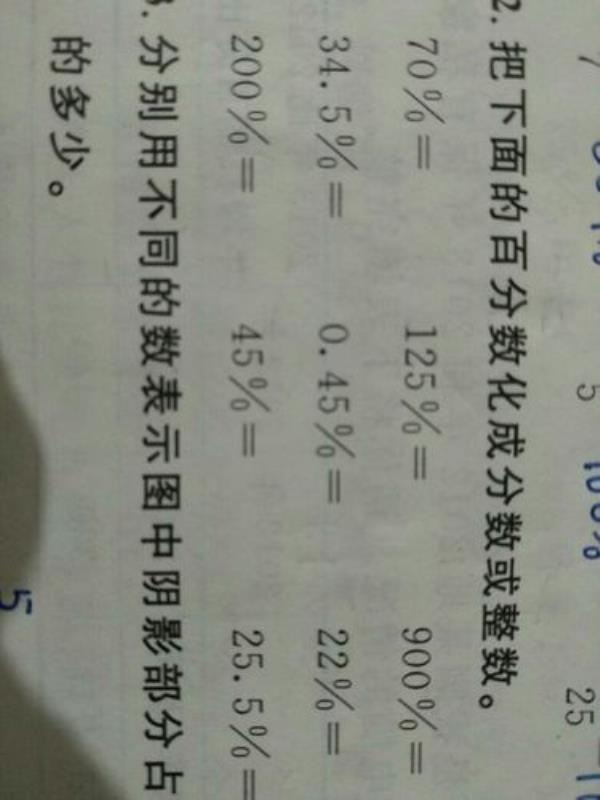 2. 把下面的百分数化成分数或整数。
70%= 125%= 900%=
34.5%= 0.45%= 22%=
200%= 45%= 25.5%=
3. 分别用不同的数表示图中阴影部分占
的多少。
5